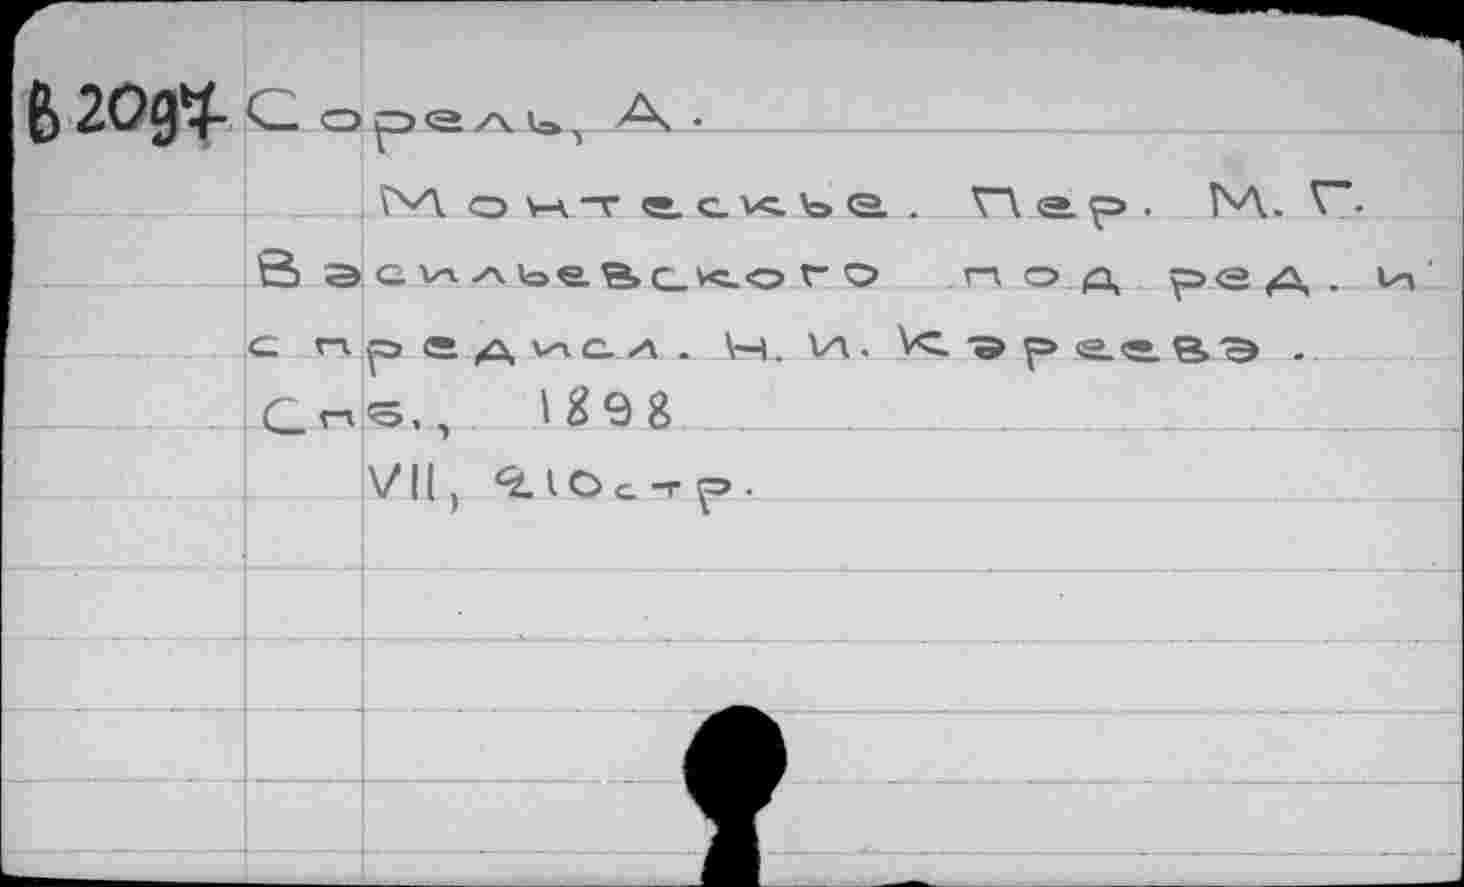 В2094 Сорель, А.
Монтескье. Пер. М. Г.
Васильевского под ред. и
с предисл. Н. И. Кареева.
Спб., 1898
VII, 210 стр.